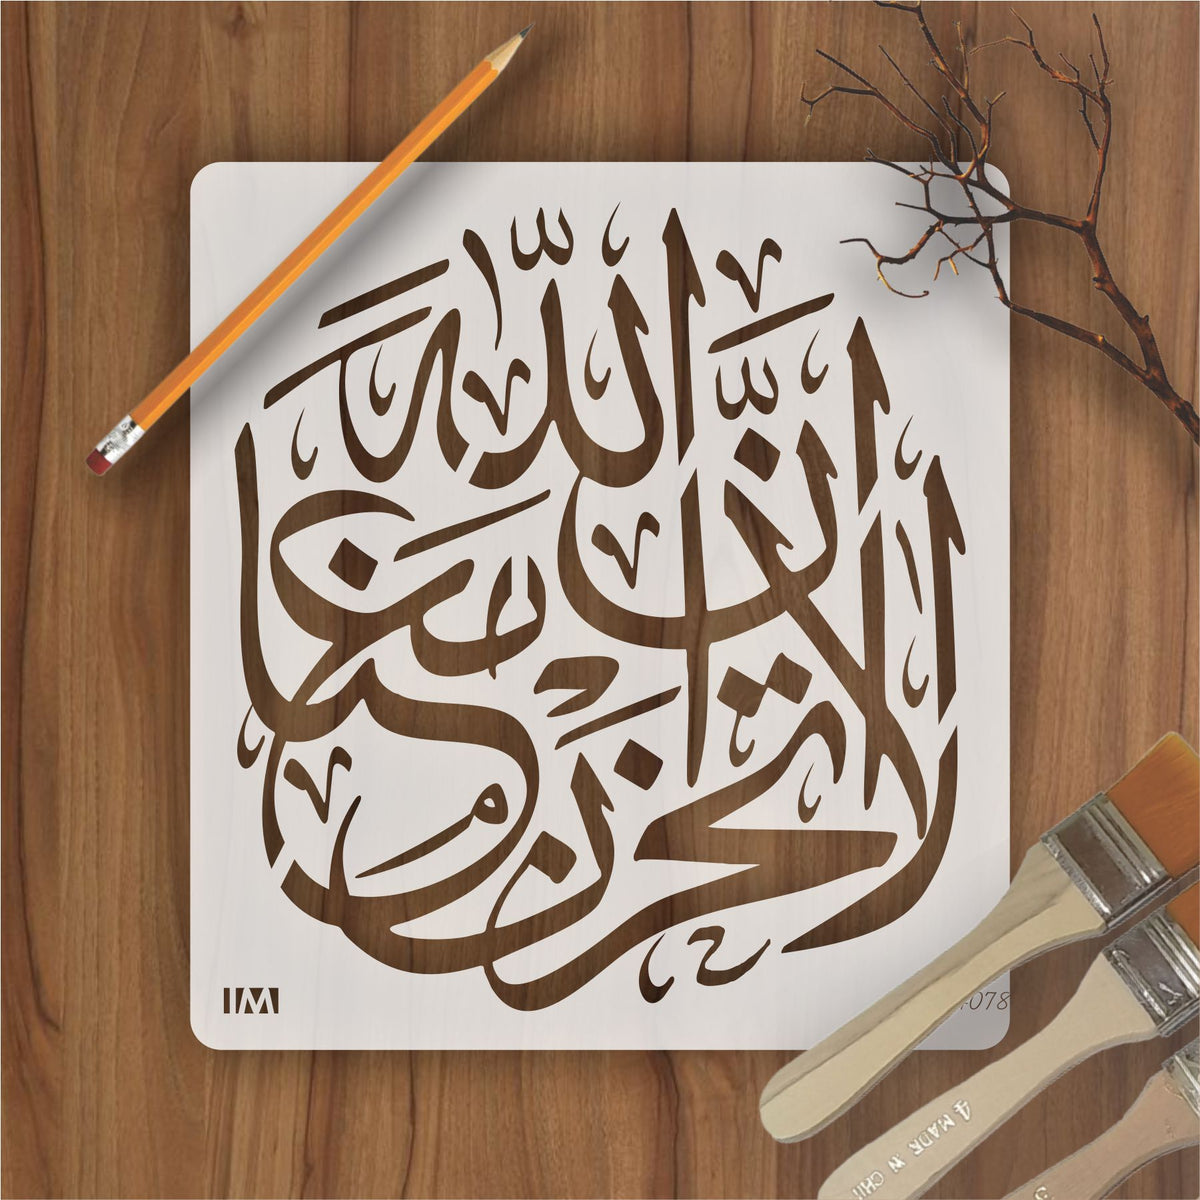 لَا تَحْزَنْ إِنَّ اللَّهَ مَعَنَا
IM
078
4 MADE IN CHI